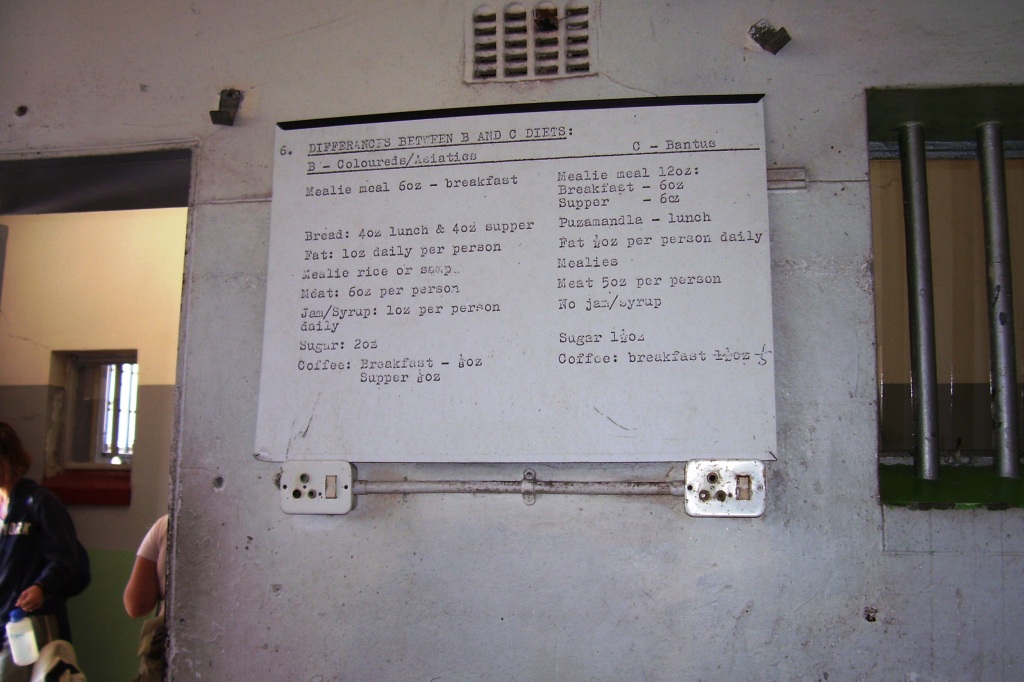 6. DIFFERANCES BETWEEN B AND C DIETS:
B - Coloureds/Asiatics
C - Bantus
Mealie meal 6oz - breakfast
Bread: 4oz lunch & 4oz supper
Fat: 1oz daily per person
Mealie rice or samp
Meat: 6oz per person
Jam/Syrup: 1oz per person
daily
Sugar: 2oz
Coffee: Breakfast -
Supper
Mealie meal 12oz:
Breakfast - 6oz
Supper - 6oz
Puzamandla - lunch
Fat ½oz per person daily
Mealies
Meat 5oz per person
No jam/syrup
Sugar 1½oz
Coffee: breakfast